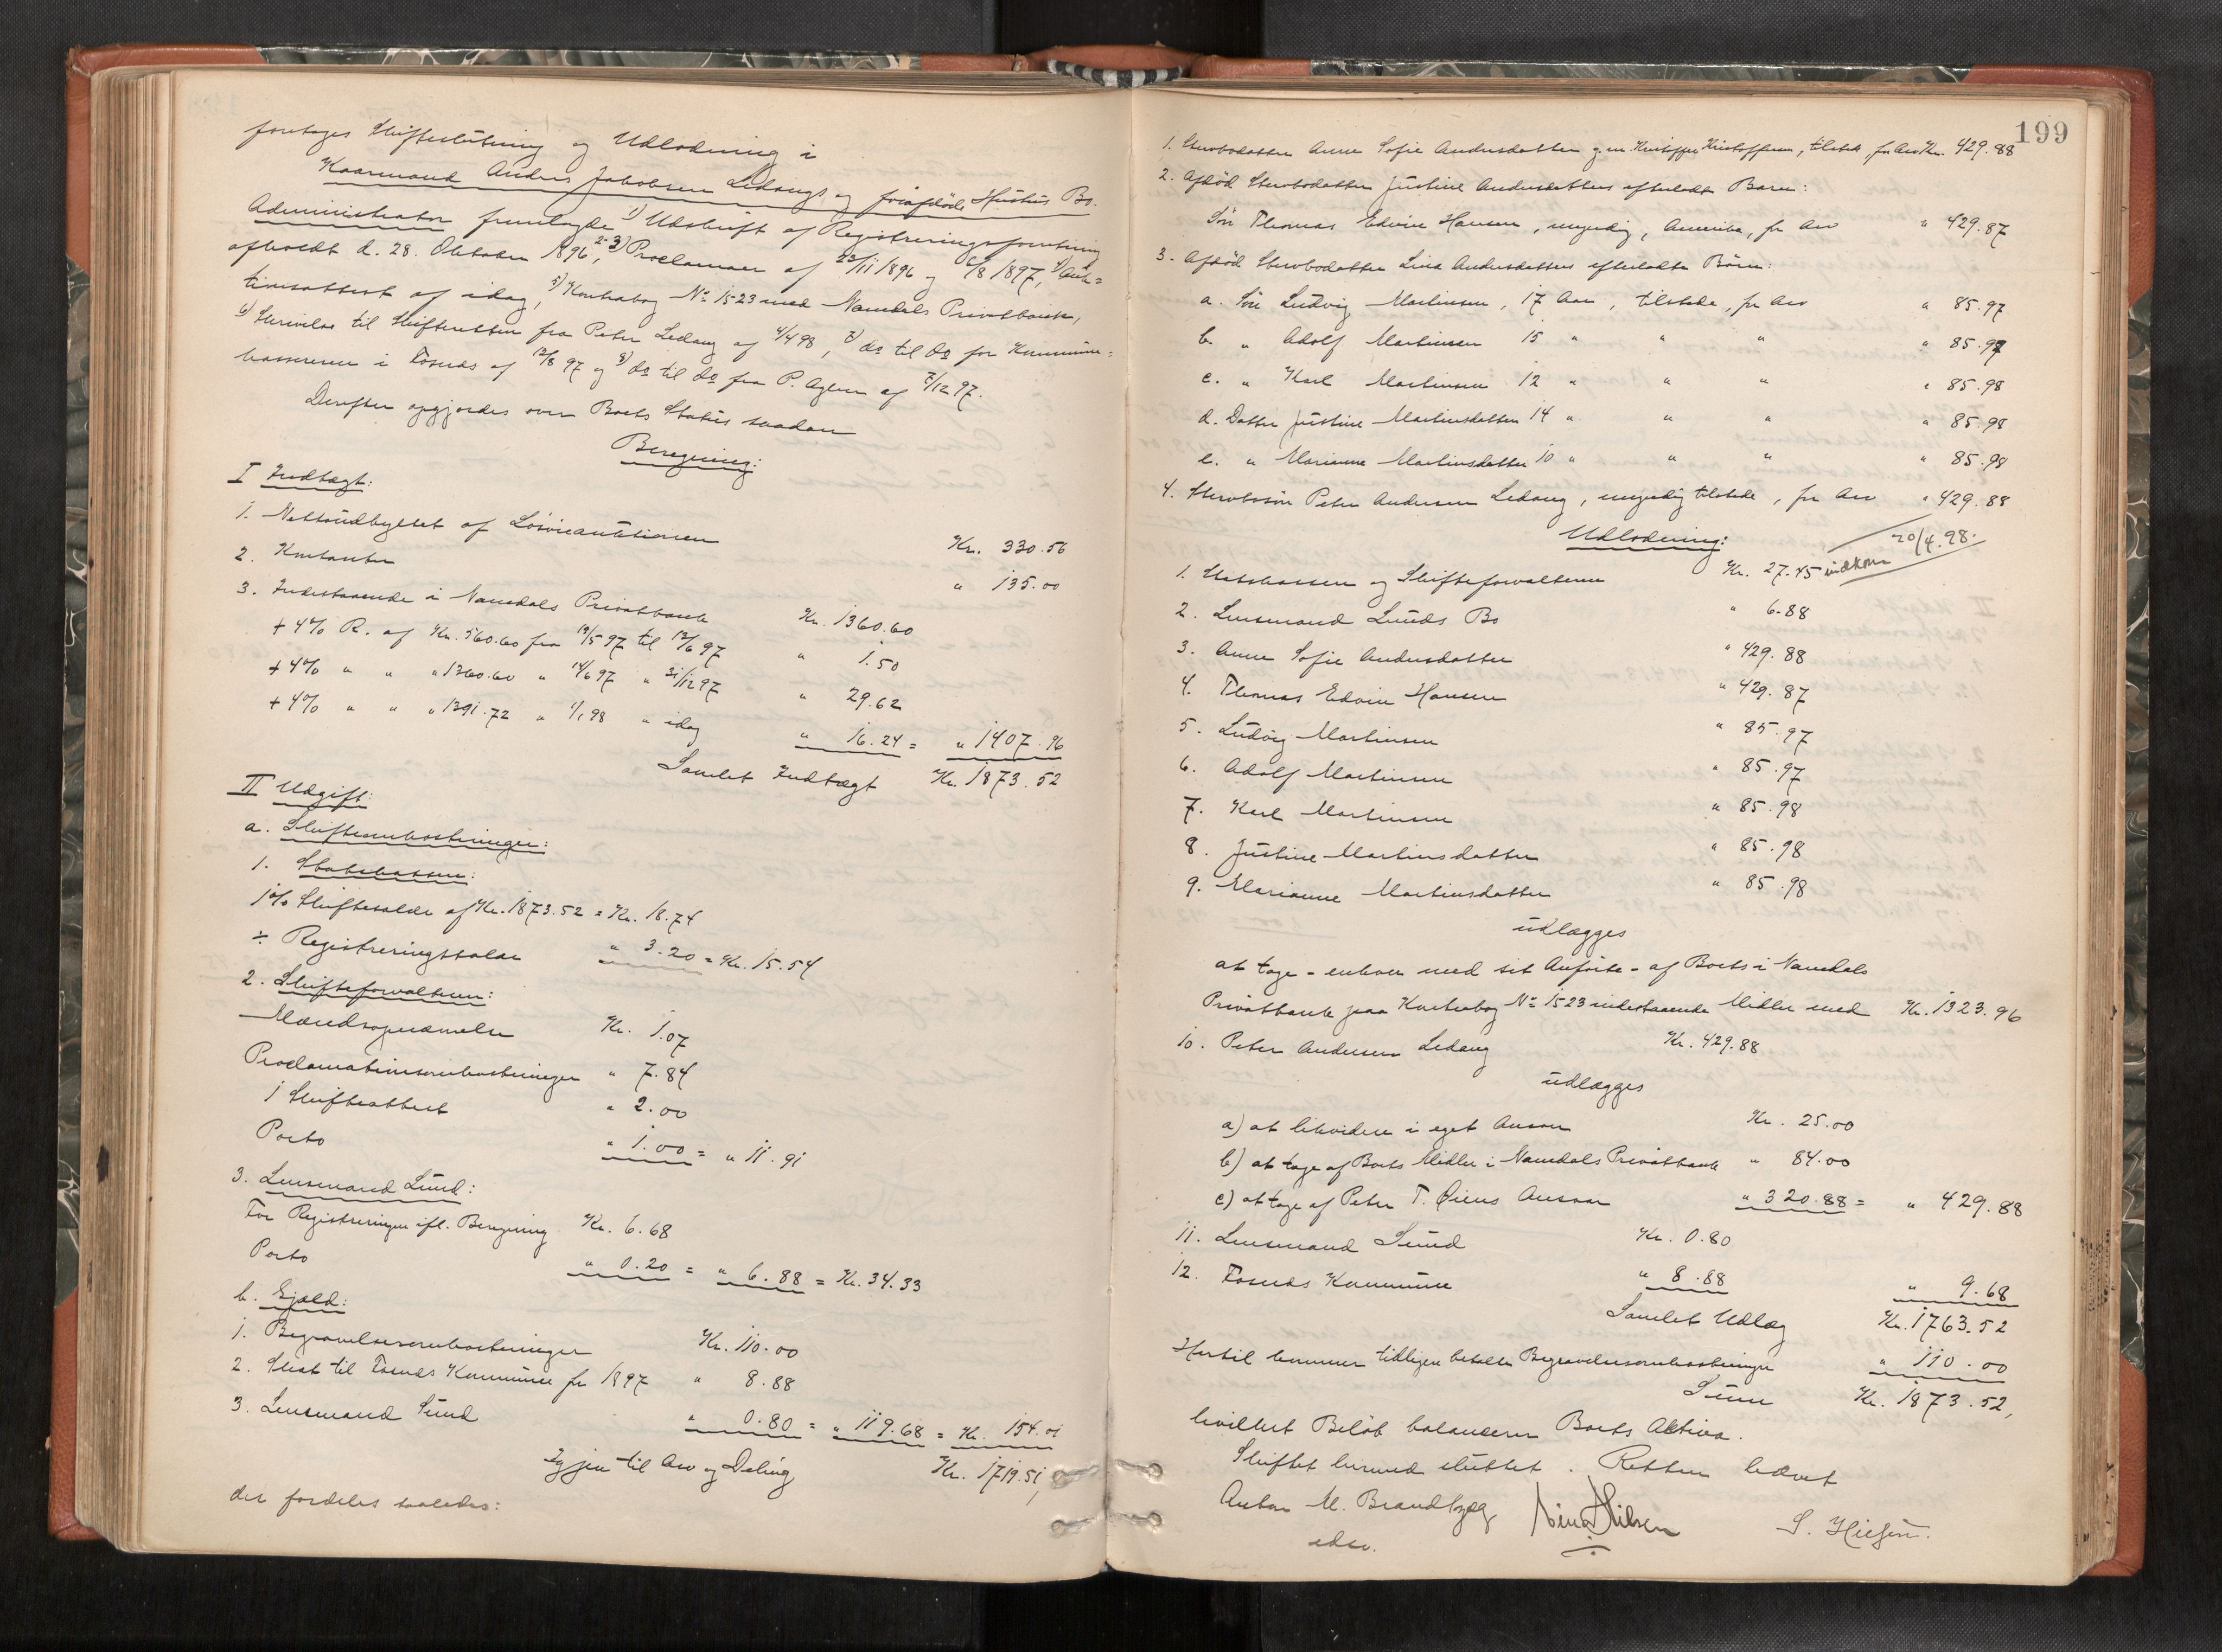 foretages Skifteslutning og Udlodning i
Kaarmand Anders Jakobsen Ledangs og foraflöde Hustrus Bo.
Administrator fremlagde 1) Udskrift af Registreringsforretning
afholdt d. 28. Oktober 1896, 2-3) Proclamaer af 23/11 1896 og 6/8 1897, 4) Auk=
tionsattest af idag, 5) Kontrabog No 1523 med Namdals Privatbank,
6) Skrivelse til Skifteretten fra Peter Ledang af 4/4 98, 7) do til do for Kommune=
kassereren i Fosnæs af 12/8 97 og 8) do til do fra P. Aglen af 7/12 97.
Derefter opgjordes over Boets Status saadan
Beregning:
I Indtægt:
1. Nettoudbyttet af Lösöreauktionen Kr. 330.56
2. Kontanter " 135.00
3. Indestaaende i Namdals Privatbank Kr. 1360.60
+ 4% R. af Kr. 560.60 fra 19/5 97 til 13/6 97 " 1.50
+ 4% " " " 1360.60 " 14/6 97 " 31/12 97 " 29.62
+ 4% " " " 1391.72 " 1/1 98 " idag " 16.24 = " 1407.96
Samlet Indtægt Kr. 1873.52
II Udgift:
a. Skifteomkostninger:
1. Statskassen:
1% Skiftesalær af Kr. 1873.52 = Kr. 18.74
÷ Registreringssalær " 3.20 = Kr. 15.54
2. Skifteforvalteren:
Mændsopnævnelse Kr. 1.07
Proclamationsomkostninger " 7.84
1 Skifteattest " 2.00
Porto " 1.00 = " 11.91
3. Lensmand Lund:
For Registreringen ifl. Beregning Kr. 6.68
Porto " 0.20 = " 6.88 = Kr. 34.33
b. Gjæld:
1. Begravelsesomkostninger Kr. 110.00
2. Skat til Fosnæs Kommune for 1897 " 8.88
3. Lensmand Lund " 0.80 = " 119.68 = Kr. 154.01
Igjen til Arv og Deling Kr. 1719.51,
der fordeles saaledes:
199
1. Stervbodatter Anne Sofie Andersdatter g.m. Kristoffer Kristoffersen, tilstede, for Arv Kr. 429.88
2. Afdöd Stervbodatter Justine Andersdatters efterladte Barn:
Sön Thomas Edvin Hansen, umyndig, Amerika, for Arv " 429.87
3. Afdöd Stervbodatter Lina Andersdatters efterladte Börn:
a. Sön Ludvig Martinsen, 17 Aar, tilstede, for Arv " 85.97
b. " Adolf Martinsen 15 " " " " 85.97
c. " Karl Martinsen 12 " " " " 85.98
d. Datter Justine Martinsdatter 14 " " " " 85.98
e. " Marianne Martinsdatter 10 " " " " 85.98
4. Stervbosön Peter Andersen Ledang, umyndig tilstede, for Arv " 429.88
Udlodning:
1. Statskassen og Skifteforvalteren Kr. 27.45 indkom 20/4.98.
2. Lensmand Lunds Bo " 6.88
3. Anne Sofie Andersdatter " 429.88
4. Thomas Edvin Hansen " 429.87
5. Ludvig Martinsen " 85.97
6. Adolf Martinsen " 85.97
7. Karl Martinsen " 85.98
8. Justine Martinsdatter " 85.98
9. Marianne Martinsdatter " 85.98
udlægges
at tage - enhver med sit Anförte - af Boets i Namdals
Privatbank paa Kontrabog No 1523 indestaaende Midler med Kr. 1323.96
10. Peter Andersen Ledang Kr. 429.88
udlægges
a) at likvidere i eget Ansvar Kr. 25.00
b) at tage af Boets Midler i Namdals Privatbank " 84.00
c) at tage af Peter T. Öiens Ansvar " 320.88 = " 429.88
11. Lensmand Lund Kr. 0.80
12. Fosnæs Kommune " 8.88 " 9.68
Samlet Udlæg Kr. 1763.52
Hertil kommer tidligere betalte Begravelsesomkostninger " 110.00
Sum Kr. 1873.52,
hvilket Belöb balancerer Boets Aktiva.
Skiftet hermed sluttet. Retten hævet
Anton M. Brandtzæg Nilsen